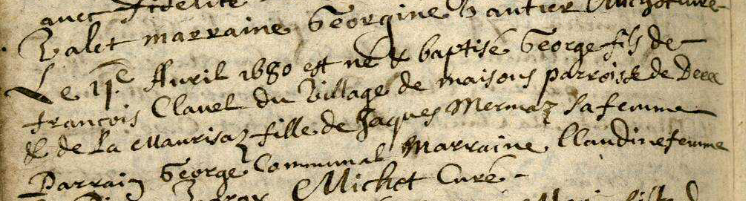 avec fidelité
Valet marraine Georgine Gantier
Le 11e Auril 1680 est né & baptisé George fils de
francois Clauel du Village de maisons parroisse de
& de La Maurisaz fille de Jaques Mermaz sa femme
Parrain George Communal Marraine Claudine femme
Michet Curé